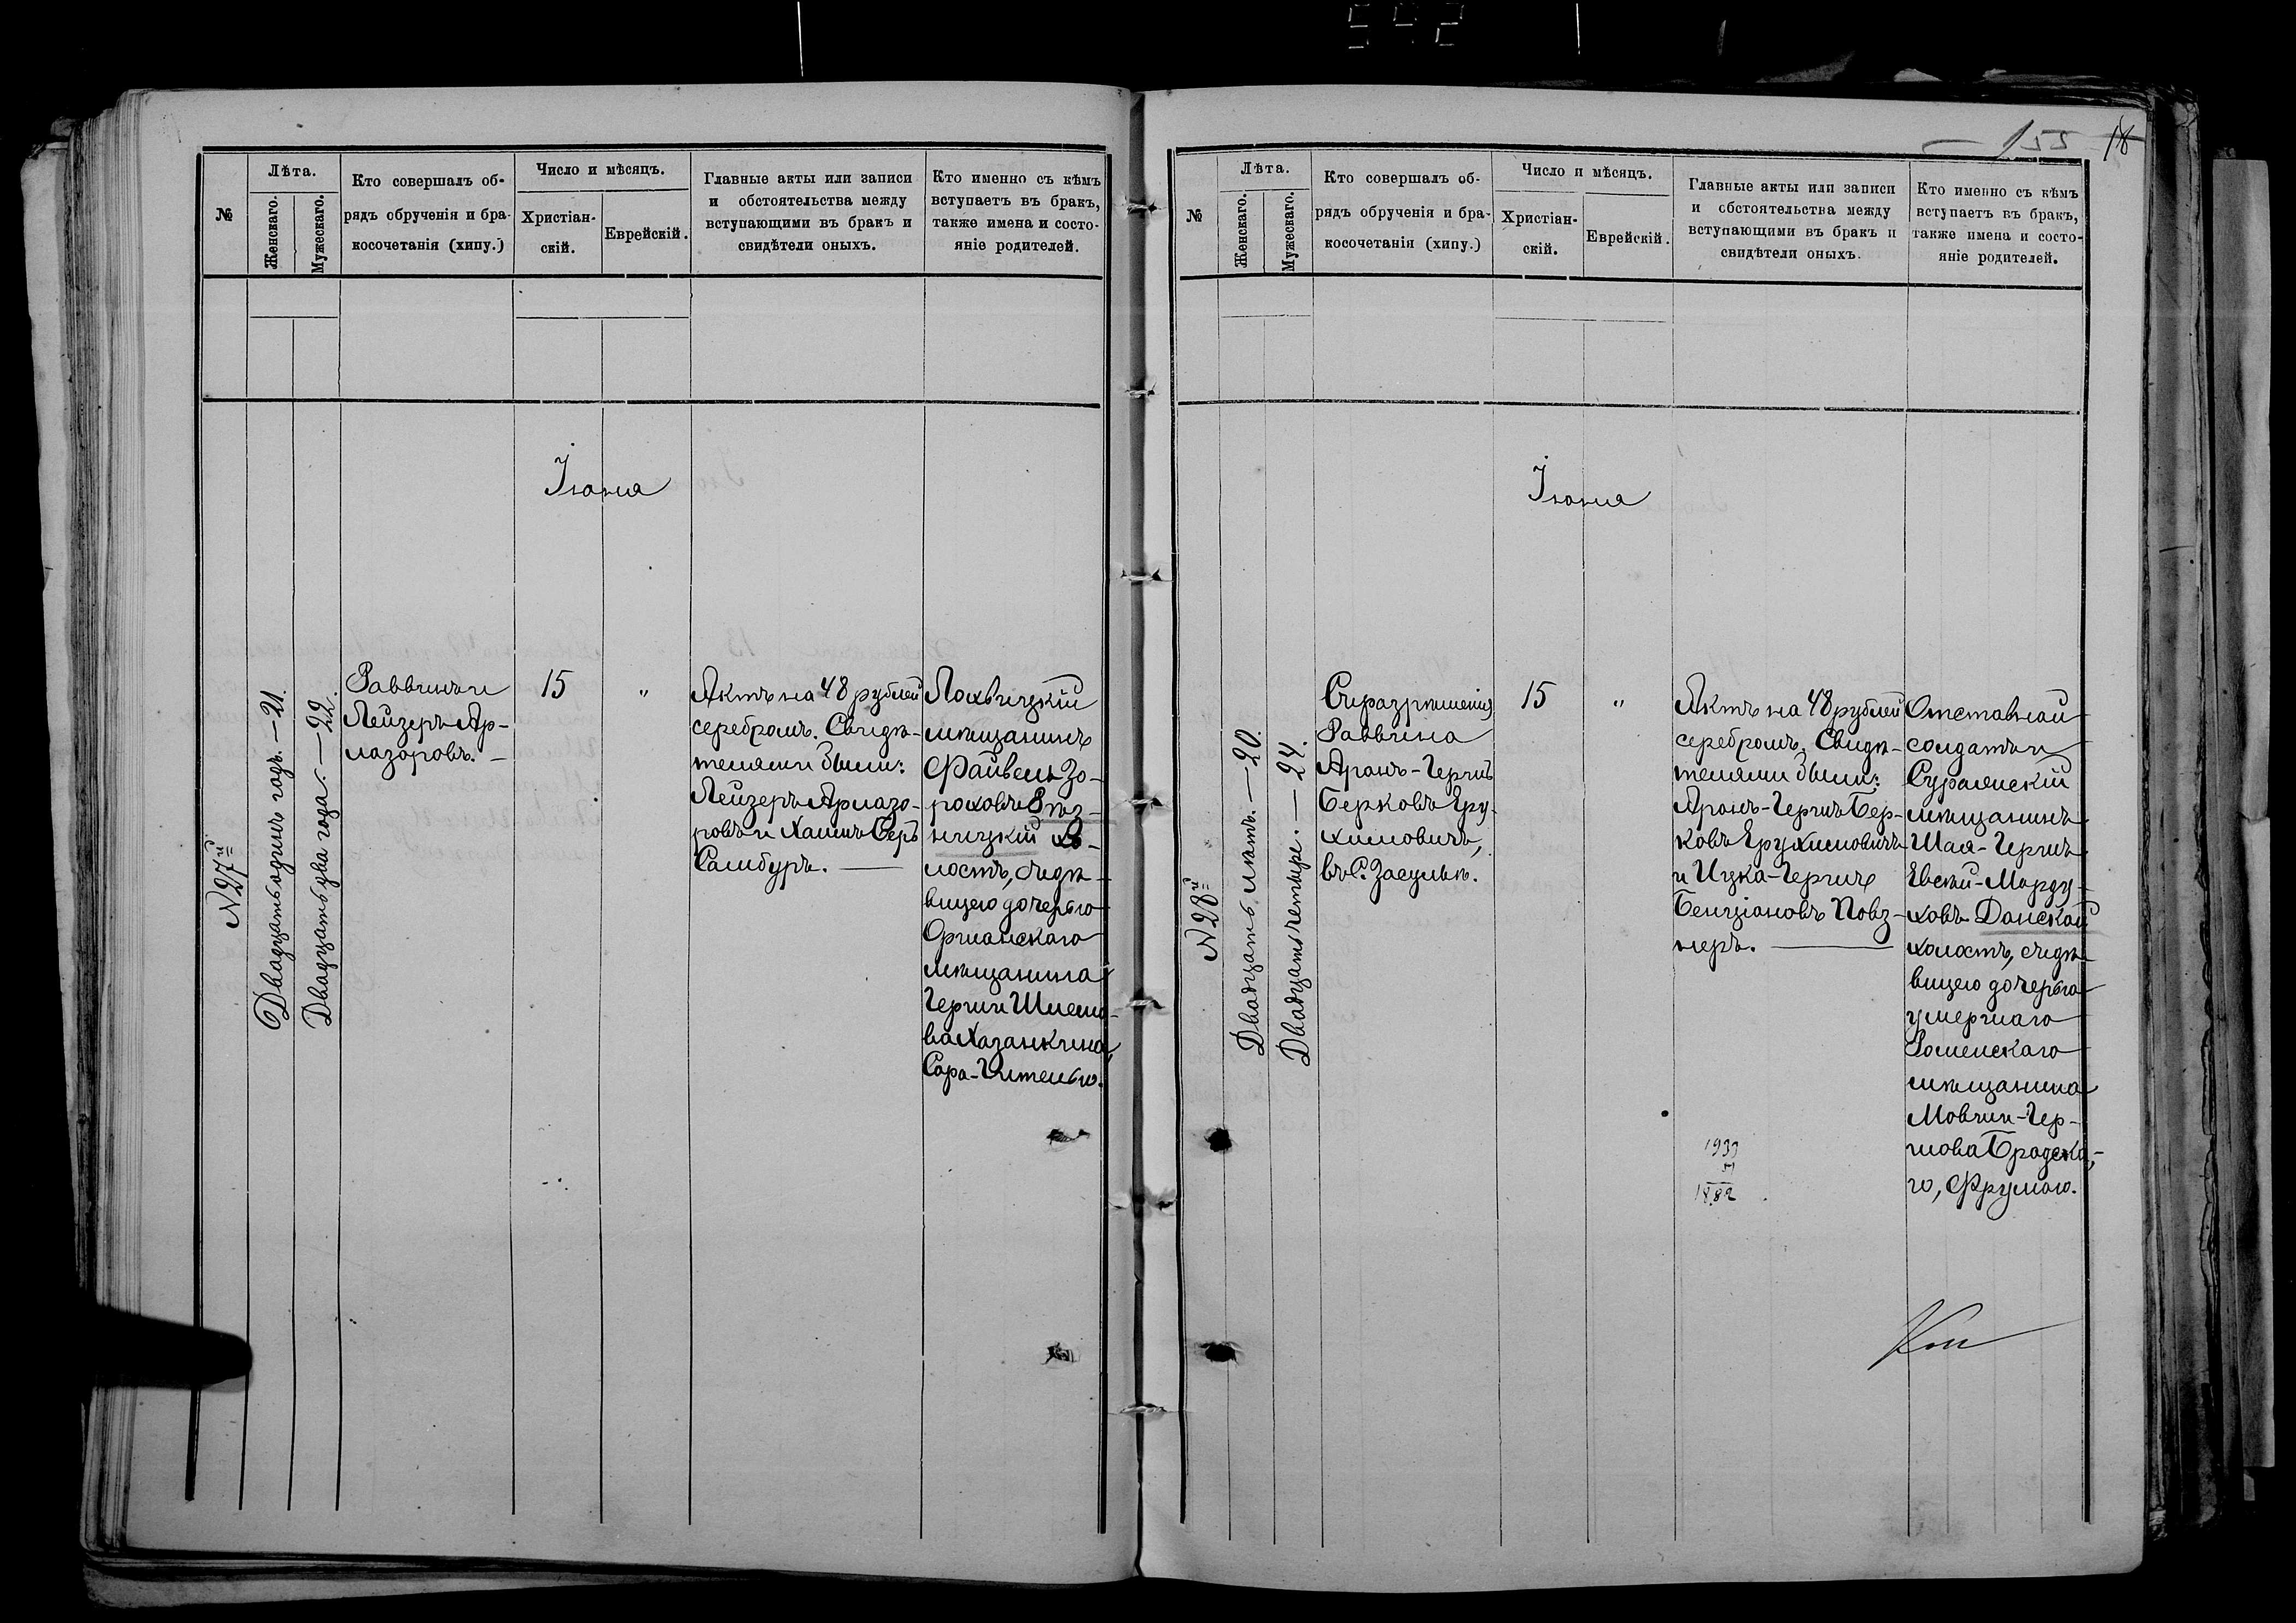 592
№
Лѣта.
Женскаго.
Мужескаго.
Кто совершалъ об-
рядъ обрученія и бра-
косочетанія (хипу.)
Число и мѣсяцъ.
Христіан-
скій.
Еврейскій.
Главные акты или записи
и обстоятельства между
вступающими въ бракъ и
свидѣтели оныхъ.
Кто именно съ кѣмъ
вступаетъ въ бракъ,
также имена и состо-
яніе родителей.
Іюня
№ 27й
Двадцать одинъ годъ. — 21.
Двадцать два года. — 22.
Раввинъ и
Лейзеръ Ар-
лазоровъ. —
15
"
Актъ на 48 рублей
серебромъ. Свидѣ-
телями были:
Лейзеръ Арлазо-
ровъ и Хаимъ Беръ
Самбуръ. —
Лохвицкій
мѣщанинъ
Файвель Зо-
роховъ
ницкій Хо-
лостъ, съ дѣ-
вицею дочерью
Оршанскаго
мѣщанина
Герши Шлемо-
ва Хазанкина,
Сора-Гителью.
155 18
№
Лѣта.
Женскаго.
Мужескаго.
Кто совершалъ об-
рядъ обрученія и бра-
косочетанія (хипу.)
Число и мѣсяцъ.
Христіан-
скій.
Еврейскій.
Главные акты или записи
и обстоятельства между
вступающими въ бракъ и
свидѣтели оныхъ.
Кто именно съ кѣмъ
вступаетъ въ бракъ,
также имена и состо-
яніе родителей.
Іюня
№ 28й
Двадцать лѣтъ. — 20.
Двадцать четыре. — 24.
Съ разрѣшенія
Раввина
Аронъ-Гершъ
Берковъ Еру-
химовичъ,
въ С. Засульѣ.
15
"
Актъ на 48 рублей
серебромъ. Свидѣ-
телями были:
Аронъ-Гершъ Бер-
ковъ Ерухимовичъ
и Ицка-Гершъ
Бенціоновъ Повз-
неръ. —
1939
51
1882
Отставной
солдатъ и
Суражскій
мѣщанинъ
Шая-Гершъ
Евсѣй-Морду-
ховъ Донской
холостъ, съ дѣ-
вицею дочерью
умершаго
Роменскаго
мѣщанина
Мовши-Гер-
шова Бродска-
го, Фрумою.